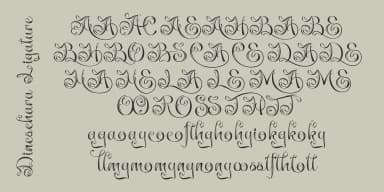 Dineschara Ligature
AA AC AE AH BA BE
BH BO BS CA CE DA DE
HA HE LA LE MA ME
OO RO SS TH TT
agaoaycocofthghohgiokgkoky
llmgmomyngnonyoosstfthtott